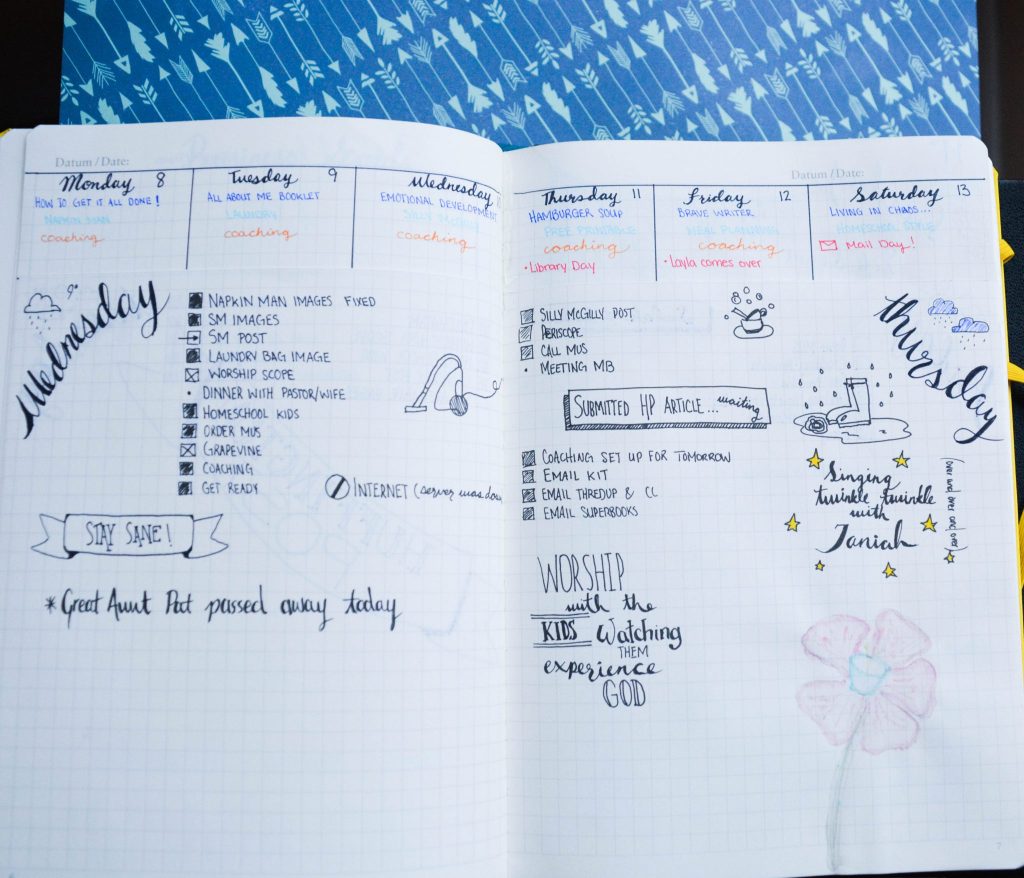 Datum / Date:
Monday 8
HOW TO GET IT ALL DONE!
NAPKIN MAN
coaching
Tuesday 9
ALL ABOUT ME BOOKLET
LAUNDRY
coaching
Wednesday
EMOTIONAL DEVELOPMENT
SILLY
coaching
Wednesday
9°
NAPKIN MAN IMAGES FIXED
SM IMAGES
SM POST
LAUNDRY BAG IMAGE
WORSHIP SCOPE
• DINNER WITH PASTOR/WIFE
HOMESCHOOL KIDS
ORDER MUS
GRAPEVINE
COACHING
GET READY
INTERNET (server was dow
STAY SANE!
* Great Aunt Pat passed away today
Datum / Date:
Thursday 11
HAMBURGER SOUP
FREE PRINTABLE
coaching
• Library Day
Friday 12
BRAVE WRITER
MEAL PLANNING
coaching
• Layla comes over
Saturday 13
LIVING IN CHAOS...
HOMESCHOOL STYLE
Mail Day!
Thursday
SILLY MCGILLY POST
PERISCOPE
CALL MUS
• MEETING MB
SUBMITTED HP ARTICLE...waiting
COACHING SET UP FOR TOMORROW
EMAIL KIT
EMAIL THREDUP & CC
EMAIL SUPERBOOKS
Singing
twinkle twinkle
with
Janiah
(over and over and over)
WORSHIP
with the
KIDS Watching
THEM
experience
GOD
7